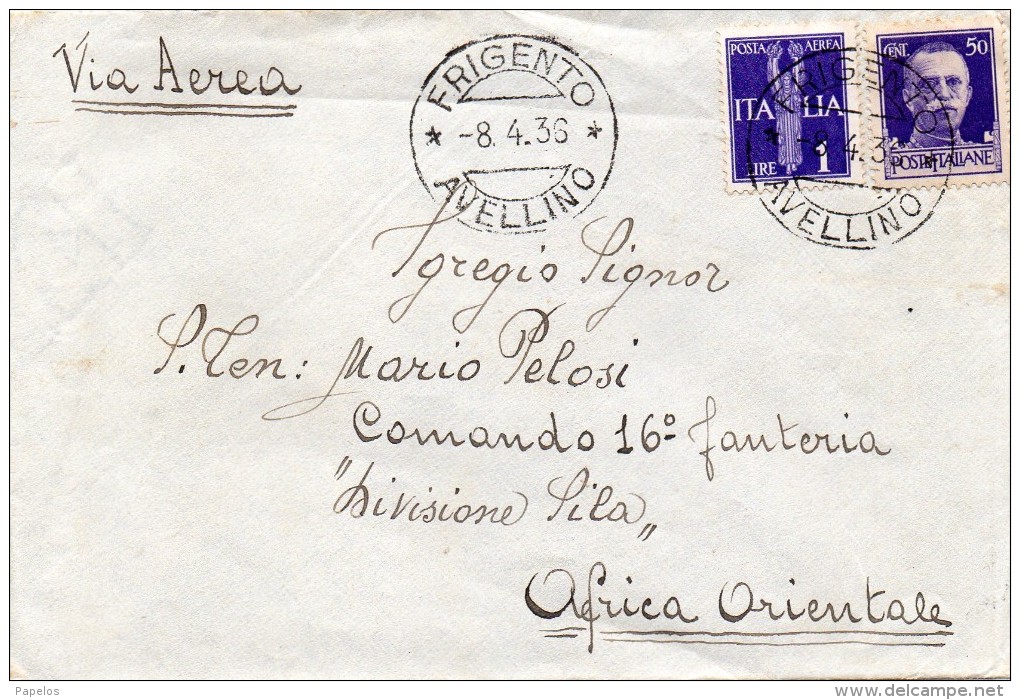 Via Aerea
FRIGENTO
* -8.4.36 *
AVELLINO
POSTA AEREA
ITALIA
LIRE 1
CENT. 50
POSTE ITALIANE
FRIGENTO
* -8.4.36 *
AVELLINO
Egregio Signor
S. Ten: Mario Pelosi
Comando 16º fanteria
"Divisione Sila„
Africa Orientale
Papelos
www.delcampe.net